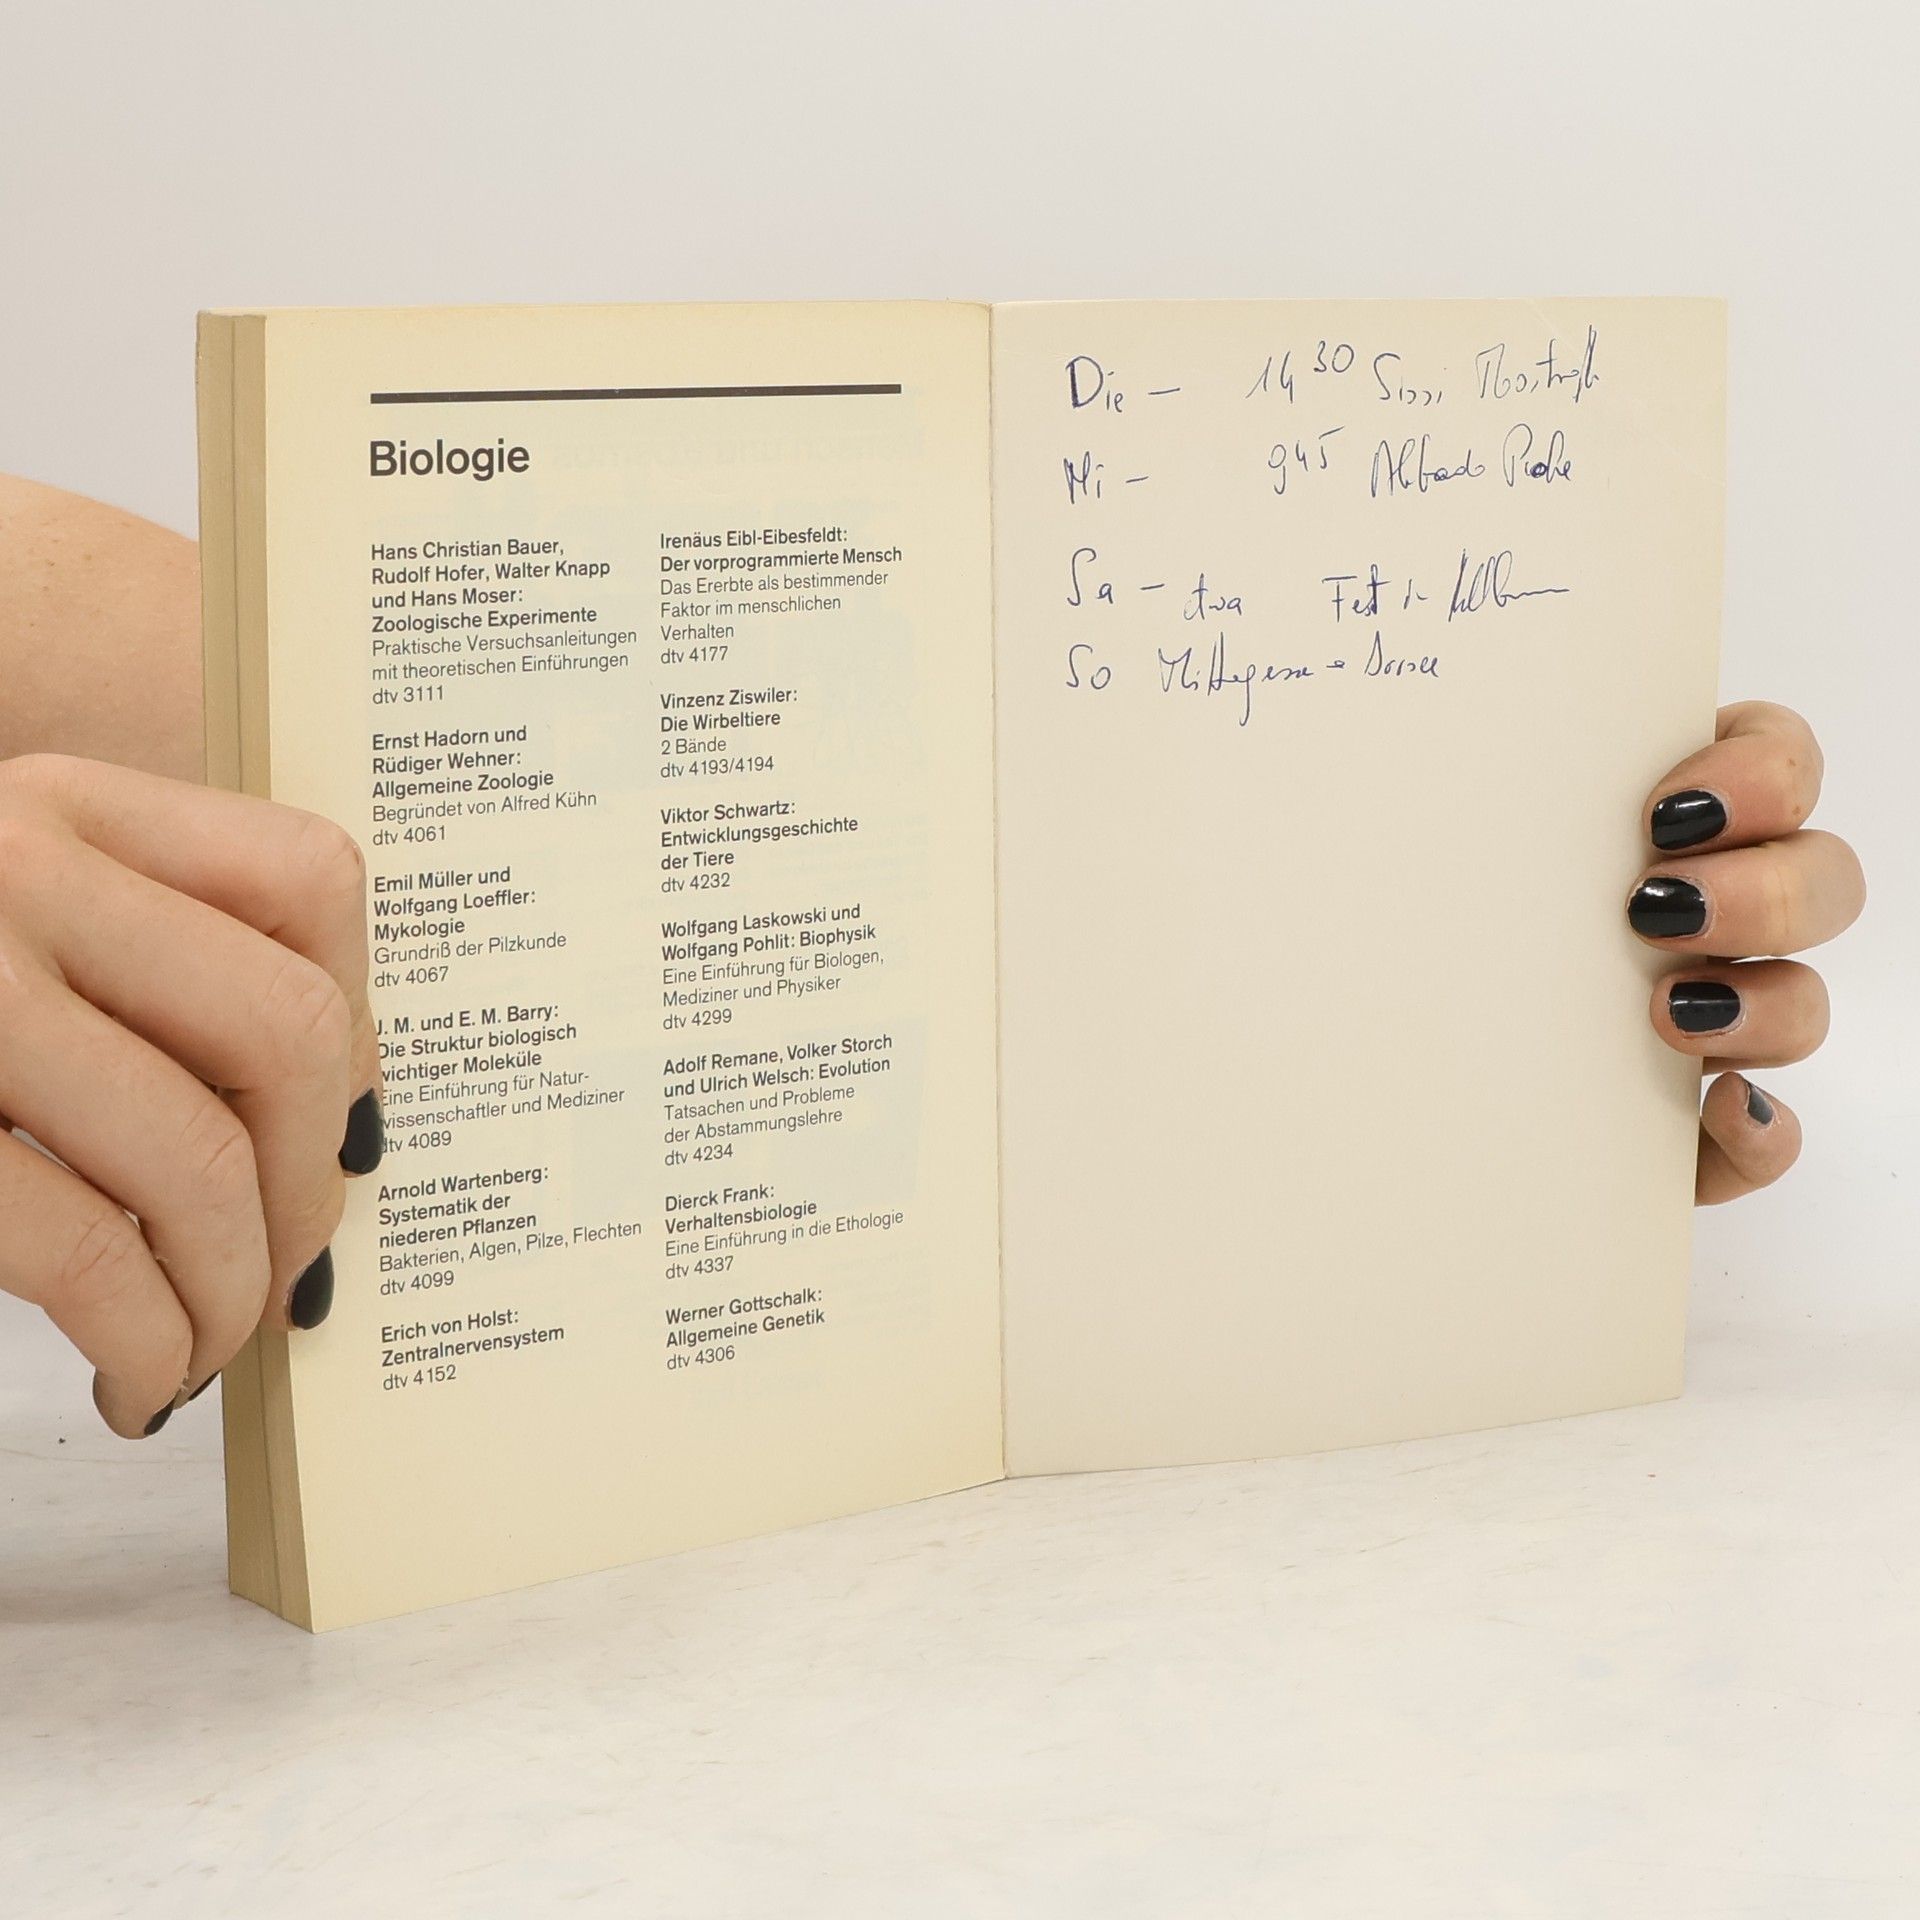 Biologie
Hans Christian Bauer,
Rudolf Hofer, Walter Knapp
und Hans Moser:
Zoologische Experimente
Praktische Versuchsanleitungen
mit theoretischen Einführungen
dtv 3111
Ernst Hadorn und
Rüdiger Wehner:
Allgemeine Zoologie
Begründet von Alfred Kühn
dtv 4061
Emil Müller und
Wolfgang Loeffler:
Mykologie
Grundriß der Pilzkunde
dtv 4067
J. M. und E. M. Barry:
Die Struktur biologisch
wichtiger Moleküle
Eine Einführung für Natur-
wissenschaftler und Mediziner
dtv 4089
Arnold Wartenberg:
Systematik der
niederen Pflanzen
Bakterien, Algen, Pilze, Flechten
dtv 4099
Erich von Holst:
Zentralnervensystem
dtv 4152
Irenäus Eibl-Eibesfeldt:
Der vorprogrammierte Mensch
Das Ererbte als bestimmender
Faktor im menschlichen
Verhalten
dtv 4177
Vinzenz Ziswiler:
Die Wirbeltiere
2 Bände
dtv 4193/4194
Viktor Schwartz:
Entwicklungsgeschichte
der Tiere
dtv 4232
Wolfgang Laskowski und
Wolfgang Pohlit: Biophysik
Eine Einführung für Biologen,
Mediziner und Physiker
dtv 4299
Adolf Remane, Volker Storch
und Ulrich Welsch: Evolution
Tatsachen und Probleme
der Abstammungslehre
dtv 4234
Dierck Frank:
Verhaltensbiologie
Eine Einführung in die Ethologie
dtv 4337
Werner Gottschalk:
Allgemeine Genetik
dtv 4306
Die - 14 30 Sissi
Mi - 9 45 Probe
Sa - etwa Fest in
So